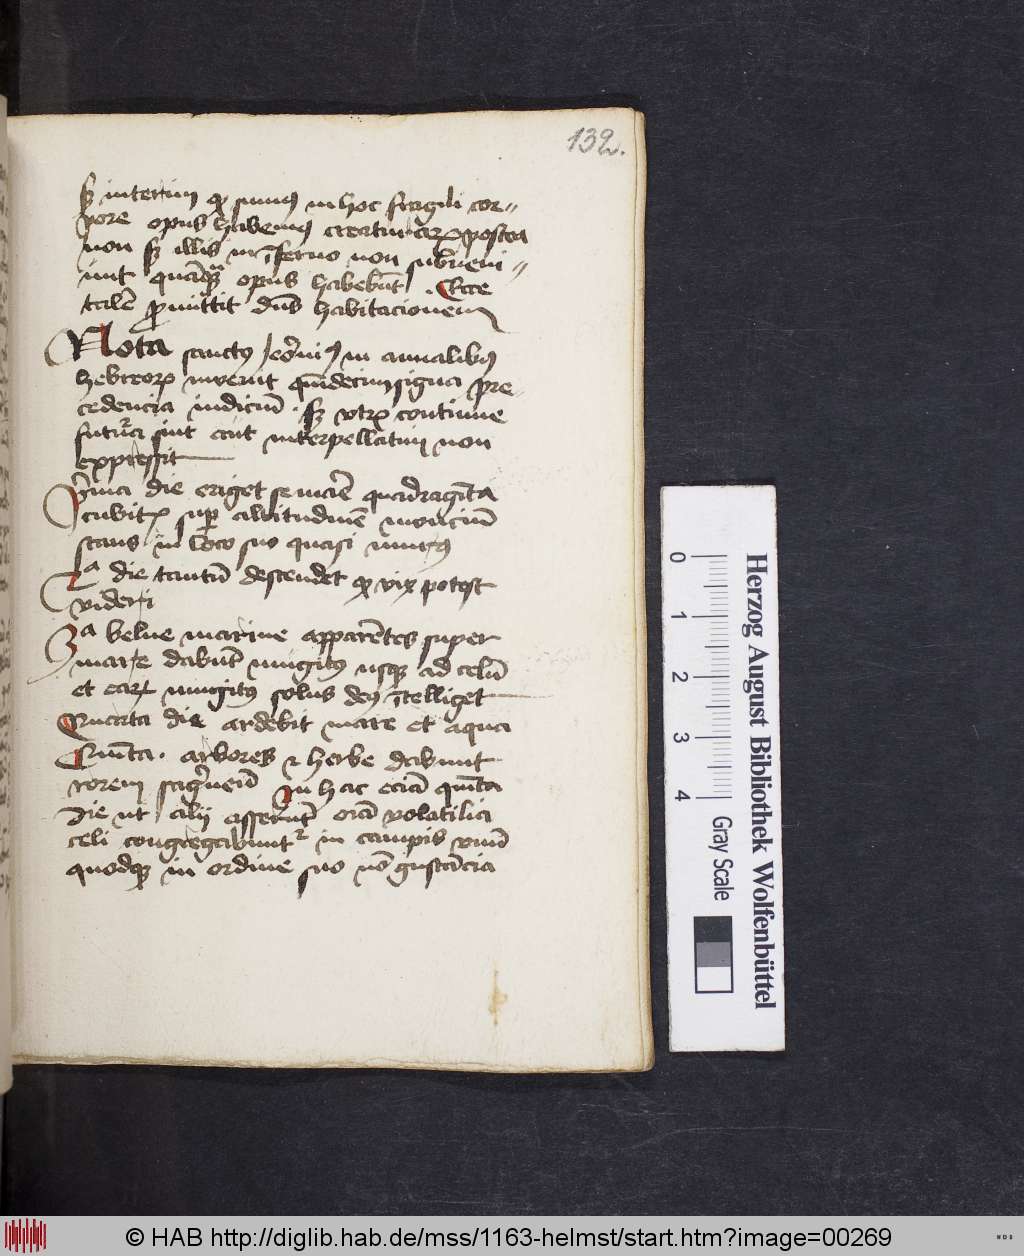 132.
sed interim quod sumus in hoc fragili cor-
pore opus habemus creaturarum postea
non sed illis in inferno non subveni-
unt quamquam opus habebunt. Ecce
talem promittit dominus habitacionem
Nota sanctus Jeronimus in annalibus
hebreorum invenit quindecim signa pre-
cedencia iudicium. sed utrum continue
futura sint aut interpellatim non
expressit
Prima die eriget se mare quadraginta
cubitis super altitudinem moncium
stans in loco suo quasi murus
2a die tantum descendet quod vix potest
videri
3a belue marine apparentes super
mare dabunt mugitus usque ad celum
et earum mugitus solus deus intelliget
Quarta die ardebit mare et aqua
Quinta. arbores et herbe dabunt
rorem sagwineum In hac eciam quinta
die ut alii asserunt eciam volatilia
celi congregabuntur in campis unum
quodque in ordine suo non gustancia
Herzog August Bibliothek Wolfenbüttel
0 1 2 3 4 Gray Scale
© HAB http://diglib.hab.de/mss/1163-helmst/start.htm?image=00269